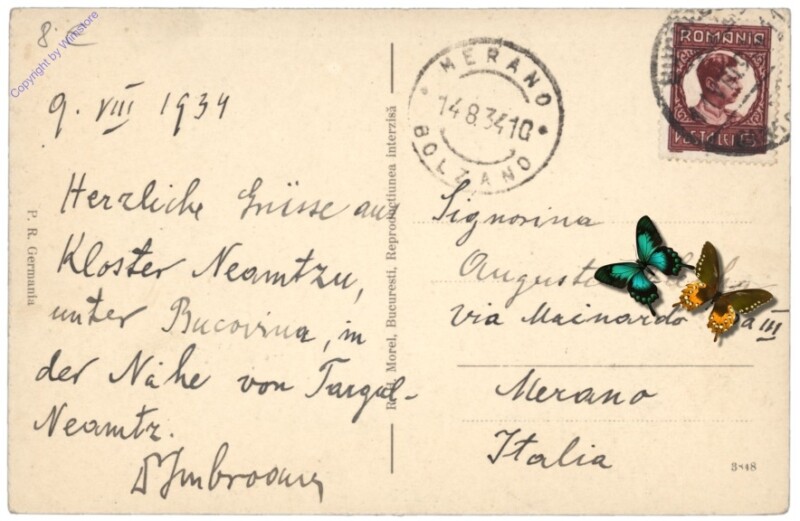 8.
Copyright by Wimstore
9. VIII 1934
Herzliche Grüsse aus
Kloster Neamtzu,
unter Bucovina, in
der Nähe von Targul-
Neamtz.
P. R. Germania
Morel, Bucuresti, Reproductiunea interzisă
MERANO
14.8.34 10
BOLZANO
ROMANIA
Signorina
via Mainardo
III
Merano
Italia
3*48